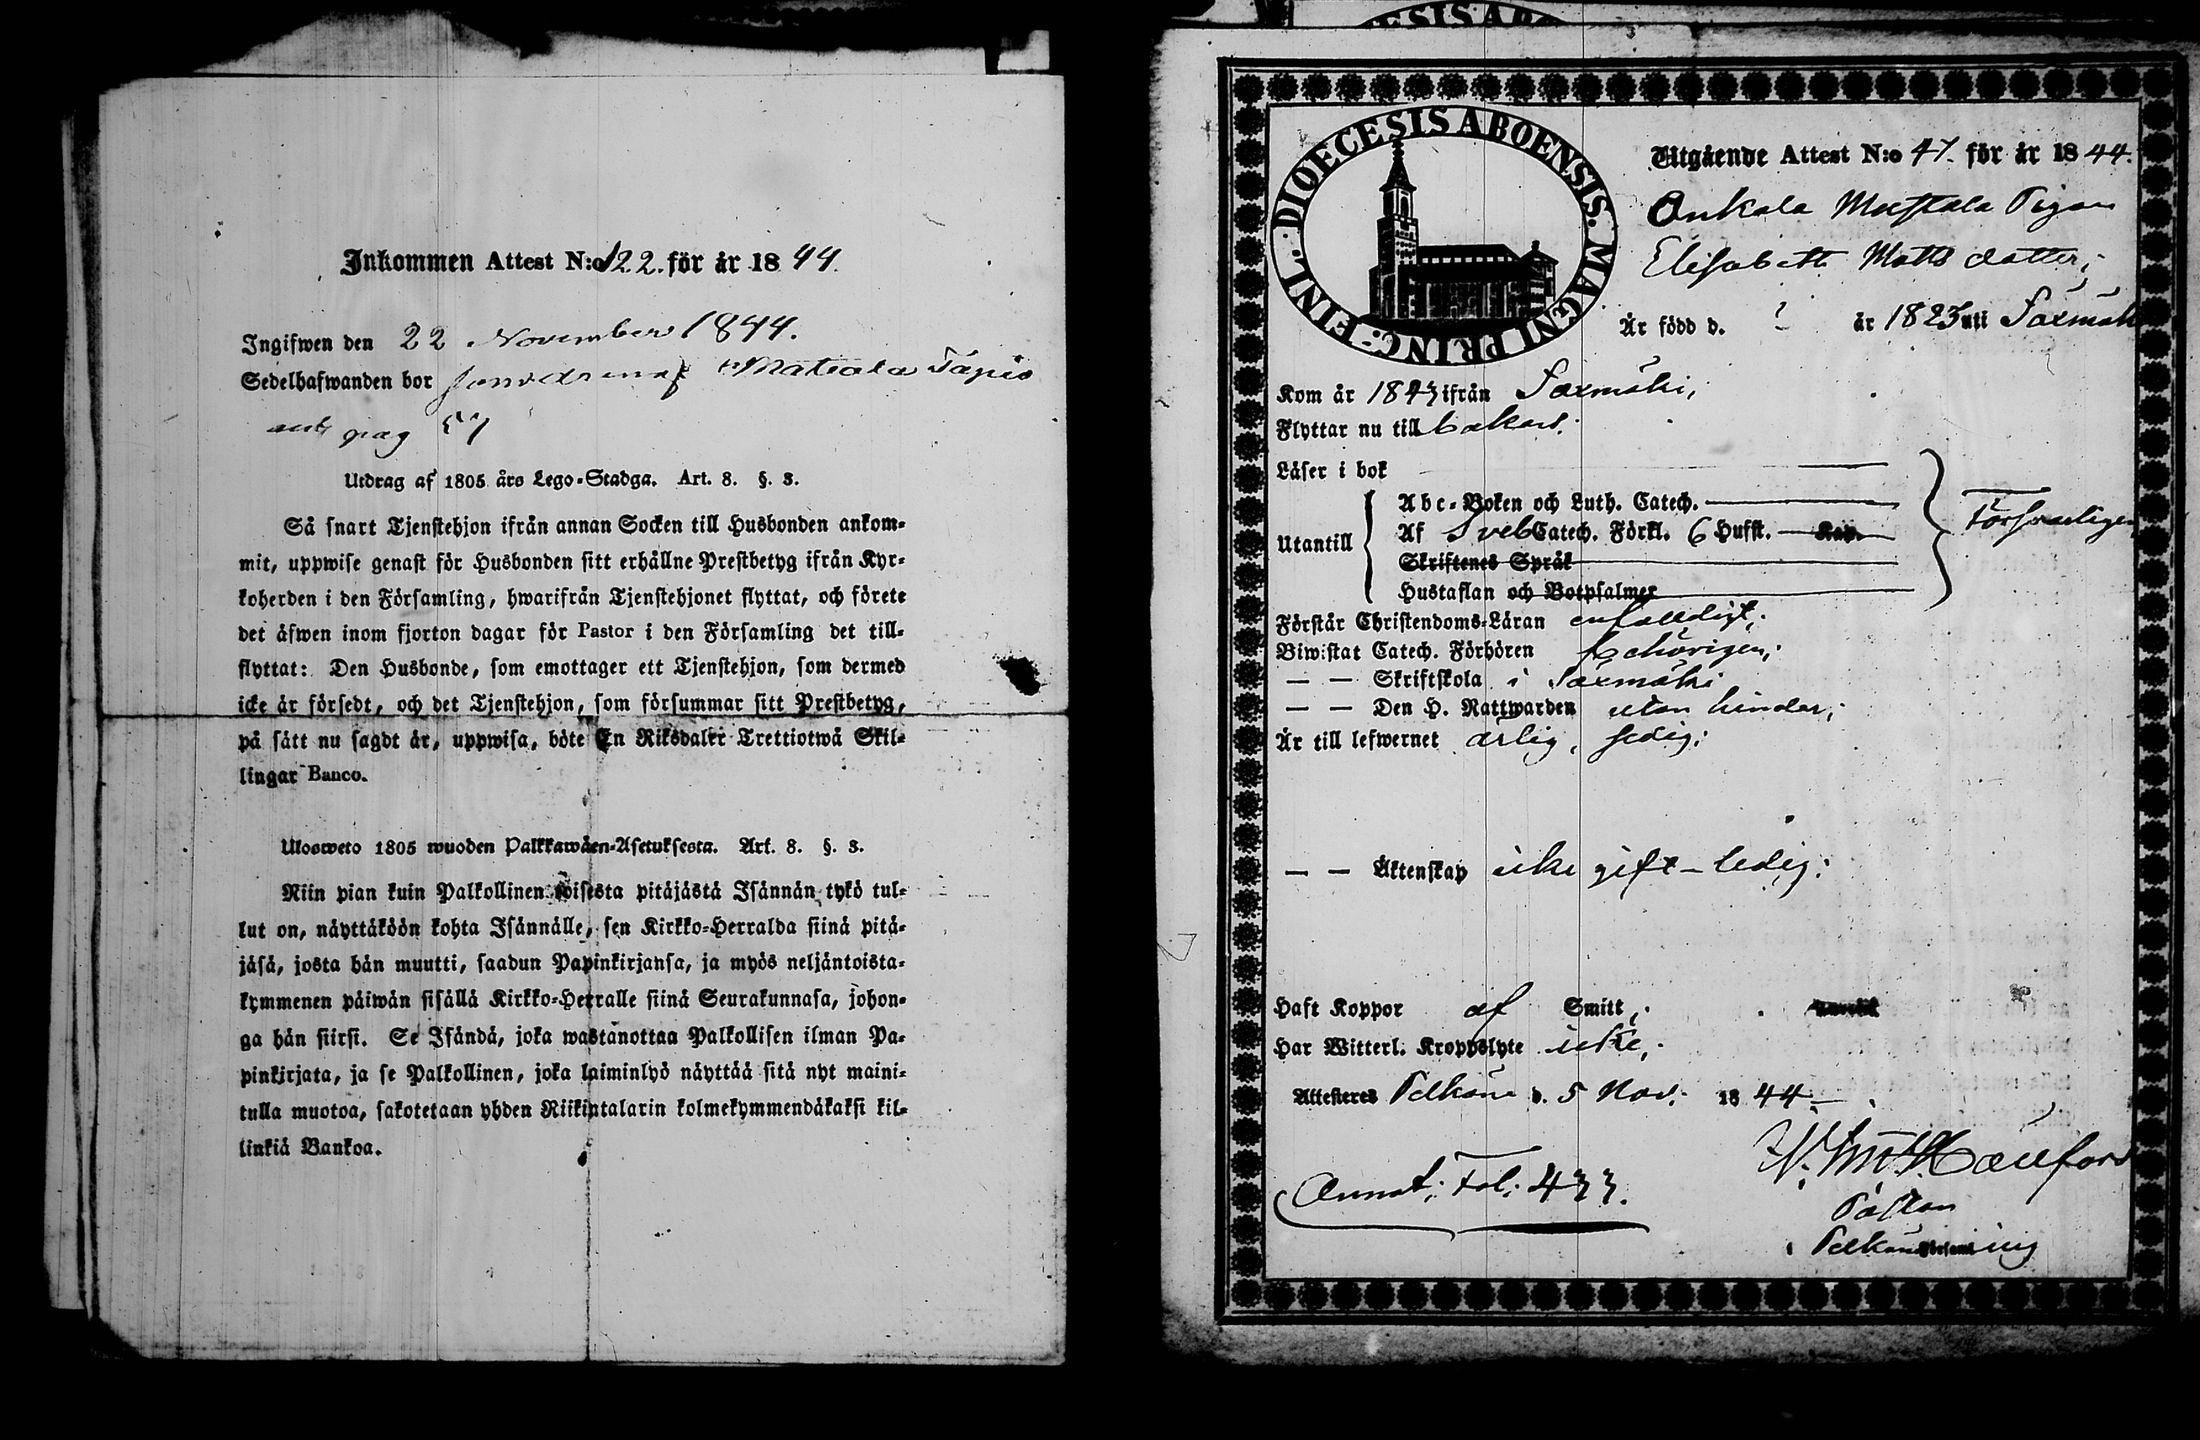 Inkommen Attest N:o 122. för år 1844.
Ingifwen den 22 November 1844.
Sedelhafwanden bor
pag 57
Utdrag af 1805 års Lego-Stadga. Art. 8. §. 3.
Så snart Tjenstehjon ifrån annan Socken till Husbonden ankom-
mit, uppwise genast för Husbonden sitt erhållne Prestbetyg ifrån Kyr-
koherden i den Församling, hwarifrån Tjenstehjonet flyttat, och förete
det äfwen inom fjorton dagar för Pastor i den Församling det till-
flyttat: Den Husbonde, som emottager ett Tjenstehjon, som dermed
icke är försedt, och det Tjenstehjon, som försummar sitt Prestbetyg,
på sätt nu sagdt är, uppwisa, böte En Riksdaler Trettiotwå Skil-
lingar Banco.
Ulosweto 1805 wuoden Palkkawäen-Asetuksesta. Art. 8. §. 3.
Niin pian kuin Palkollinen toisesta pitäjästä Isännän tykö tul-
lut on, näyttäköön kohta Isännälle, sen Kirkko-Herralda siinä pitä-
jäsä, josta hän muutti, saadun Papinkirjansa, ja myös neljäntoista-
kymmenen päiwän sisällä Kirkko-Herralle siinä Seurakunnasa, johon-
ga hän siirsi. Se Isändä, joka wastanottaa Palkollisen ilman Pa-
pinkirjata, ja se Palkollinen, joka laiminlyö näyttää sitä nyt maini-
tulla muotoa, sakotetaan yhden Riikintalarin kolmekymmendäkaksi kil-
linkiä Bankoa.
DIOECESIS ABOENSIS. MAGNI PRINC: FINL.
Utgående Attest N:o 47. för år 1844.
Onkala Mustala Pigan
Elisabeth Matts dotter;
Är född d. ? år 1823 uti Säxmäki
Kom år 1843 ifrån Säxmäki;
Flyttar nu till
Läser i bok
Utantill
Abc-Boken och Luth. Catech.
Af Sveb Catech. Förkl. 6 Hufst. Kap.
Skriftenes Språk
Hustaflan och Botpsalmer
Försvarligen
Förstår Christendoms-Läran enfaldigt;
Biwistat Catech. Förhören behörigen;
— — Skriftskola i Säxmäki
— — Den H. Nattwarden utan hinder;
Är till lefwernet ärlig, sedig;
— — Äktenskap icke gift – ledig;
Haft Koppor af Smitt;
Har Witterl. Kroppslyte icke;
Attesteres Pelkäne d. 5 Nov. 1844.
Annot. Fol. 433.
Pastor
i Pelkäne Församling